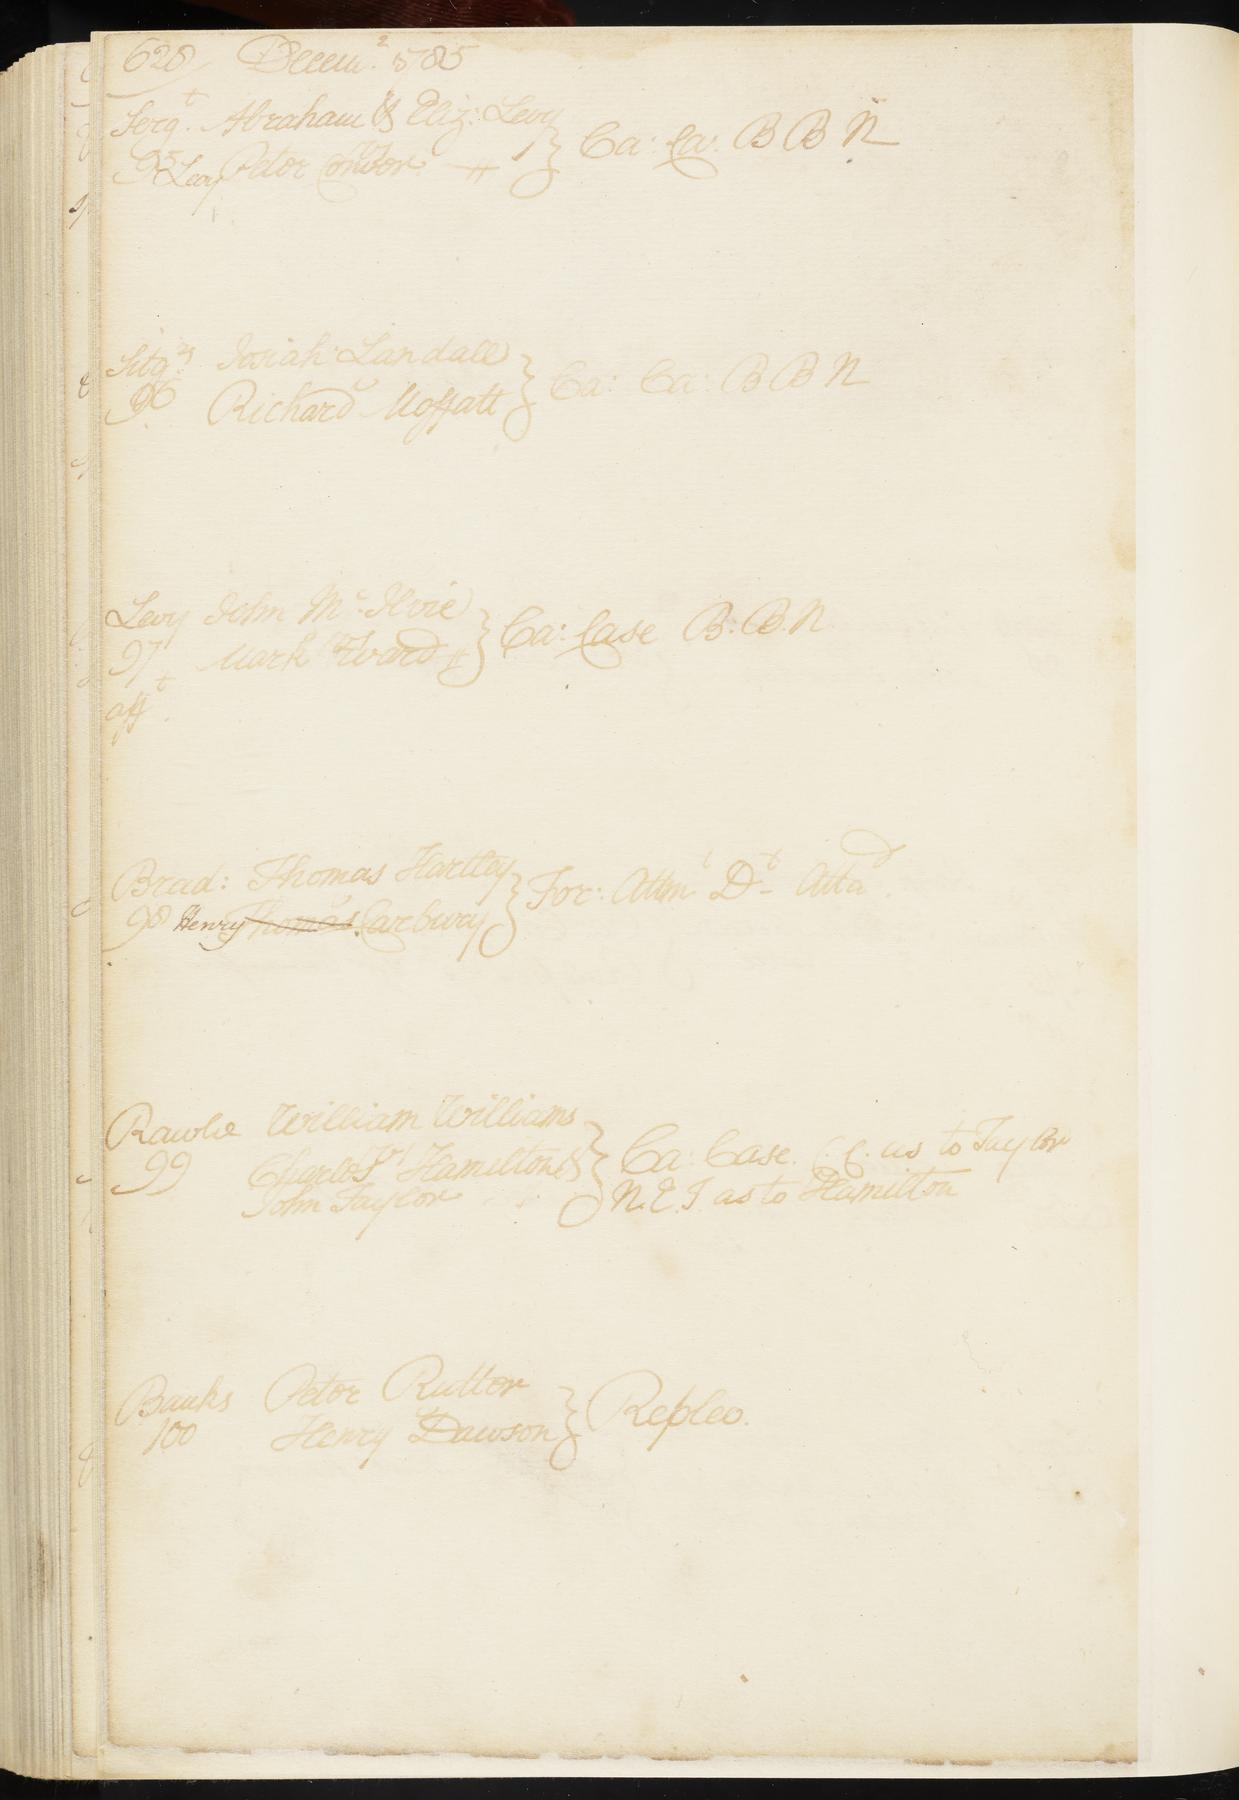 628 Decem.r 1785
Serg.t Abraham & Eliz: Levy } Ca: Ca: B B N
95 Levy Peter
Sitg.s Josiah Landall } Ca: Ca: B B N
96 Richard Moffatt
Levy John Mc. Ilvie } Ca: Case B. B. N
97 Mark Ward
aff.t
Brad: Thomas Hartley } For: Attm.t D.t Atta.d
98 Henry Thomas Carbury
Rawle William Williams } Ca: Case. C. C. as to Taylor
99 Charles Hamilton & } N. E. I as to Hamilton
John Taylor
Banks Peter Rutter } Replev.
100 Henry Dawson